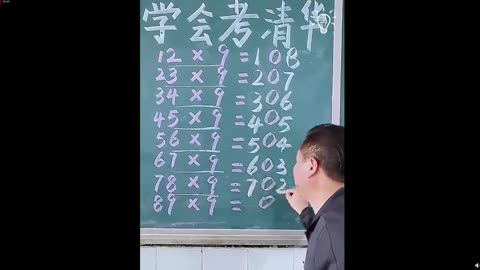 学会考清华
12×9=108
23×9=207
34×9=306
45×9=405
56×9=504
67×9=603
78×9=702
89×9= 0